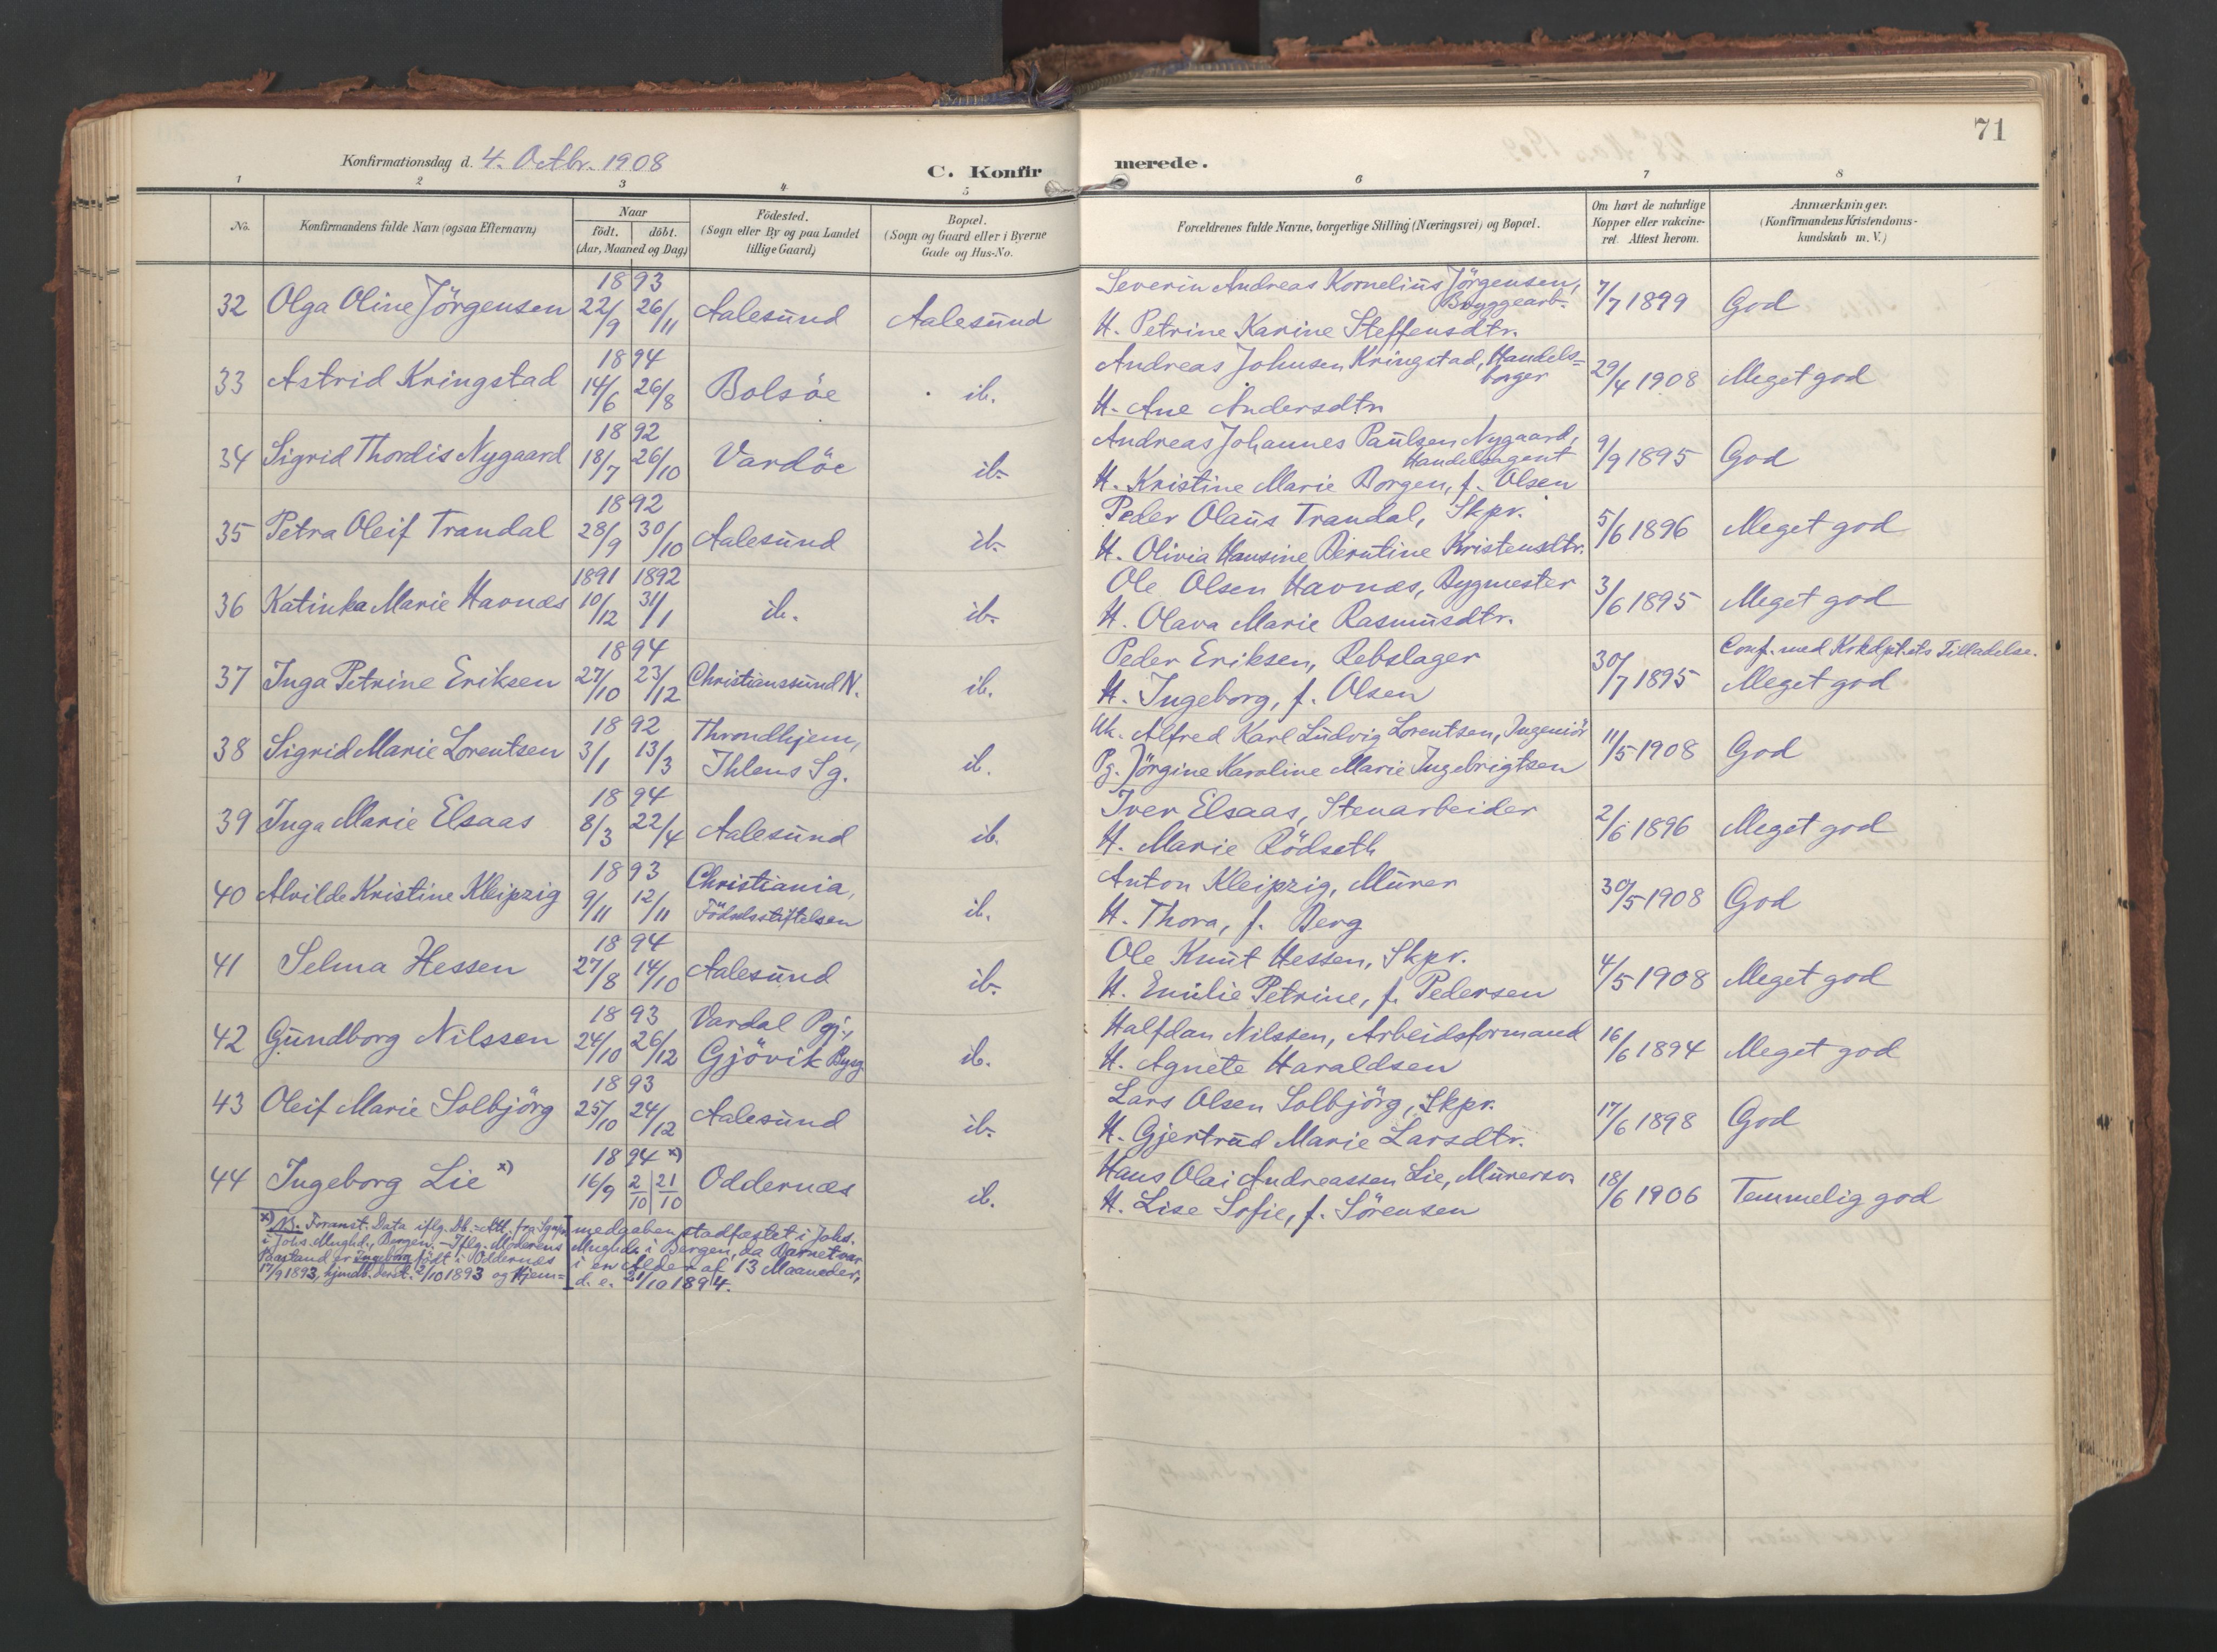 71
Konfirmationsdag d. 4. Octbr. 1908
C. Konfirmerede.
1 2 3 4 5 6 7 8
No.
Konfirmandens fulde Navn (ogsaa Efternavn)
Naar
født. døbt.
(Aar, Maaned og Dag)
Födested.
(Sogn eller By og paa Landet
tillige Gaard)
Bopæl.
(Sogn og Gaard eller i Byerne
Gade og Hus-No.
Forældrenes fulde Navne, borgerlige Stilling (Næringsvei) og Bopæl.
Om havt de naturlige
Kopper eller vakcine-
ret. Attest herom.
Anmærkninger.
(Konfirmandens Kristendoms-
kundskab m. V.)
32 Olga Oline Jörgensen 1893 22/9 26/11 Aalesund Aalesund Severin Andreas Kornelius Jörgensen, 7/7 1899 God
Bryggearb.
H. Petrine Karine Steffensdtr.
33 Astrid Kringstad 1894 14/6 26/8 Bolsöe ib. Andreas Johnsen Kringstad, Handels= 29/4 1908 Meget god
borger
H. Ane Andersdtr.
34 Sigrid Thordis Nygaard 1892 18/7 26/10 Vardöe ib. Andreas Johannes Paulsen Nygaard, 9/9 1895 God
Handelsagent
H. Kristine Marie Borgen, f. Olsen
35 Petra Oleif Trandal 1892 28/9 30/10 Aalesund ib. Peder Olaus Trandal, Skpr. 5/6 1896 Meget god
H. Olivia Hansine Berntine Kristensdtr.
36 Katinka Marie Havnæs 1891 10/12 1892 31/1 ib. ib. Ole Olsen Havnæs, Bygmester 3/6 1895 Meget god
H. Olava Marie Rasmusdtr.
37 Inga Petrine Eriksen 1894 27/10 23/12 Christianssund N. ib. Peder Eriksen, Rebslager 30/7 1895 Conf. med Krkdpt.ets Tilladelse.
H. Ingeborg, f. Olsen Meget god
38 Sigrid Marie Lorentsen 1892 3/1 13/3 Throndhjem, ib. Uk. Alfred Karl Ludvig Lorentsen, Ingeniör 11/5 1908 God
Ihlens Sg. Pg. Jörgine Karoline Marie Ingebrigtsen
39 Inga Marie Elsaas 1894 8/3 22/4 Aalesund ib. Iver Elsaas, Stenarbeider 2/6 1896 Meget god
H. Marie Rödseth
40 Alvilde Kristine Kleipzig 1893 9/11 12/11 Christiania, ib. Anton Kleipzig, Murer 30/5 1908 God
Födselsstiftelsen H. Thora, f. Berg
41 Selma Hessen 1894 27/8 14/10 Aalesund ib. Ole Knut Hessen, Skpr. 4/5 1908 Meget god
H. Emilie Petrine, f. Pedersen
42 Gundborg Nilssen 1893 24/10 26/12 Vardal Pgj., ib. Halfdan Nilssen, Arbeidsformand 16/6 1894 Meget god
Gjövik Bysg H. Agnete Haraldsen
43 Oleif Marie Solbjörg 1893 25/10 24/12 Aalesund ib. Lars Olsen Solbjörg, Skpr. 17/6 1898 God
H. Gjertrud Marie Larsdtr.
44 Ingeborg Lie x) 1894 x) 16/9 2/10 21/10 Oddernæs ib. Hans Olai Andreassen Lie, Murersv. 18/6 1906 Temmelig god
H. Lise Sofie, f. Sörensen
x) NB. Foranst. Data iflg. Db.=Att. fra Sgnpr.
i Johs. Mnghd., Bergen. – Iflg. Moderens
Paastand er Ingeborg födt i Oddernæs
17/9 1893, hjmdb. derst. 2/10 1893 og Hjem=
medaaben stadfæstet i Johs.
Mnghd. i Bergen, da Barnet var
i en Alder af 13 Maaneder,
d. e. 21/10 1894.